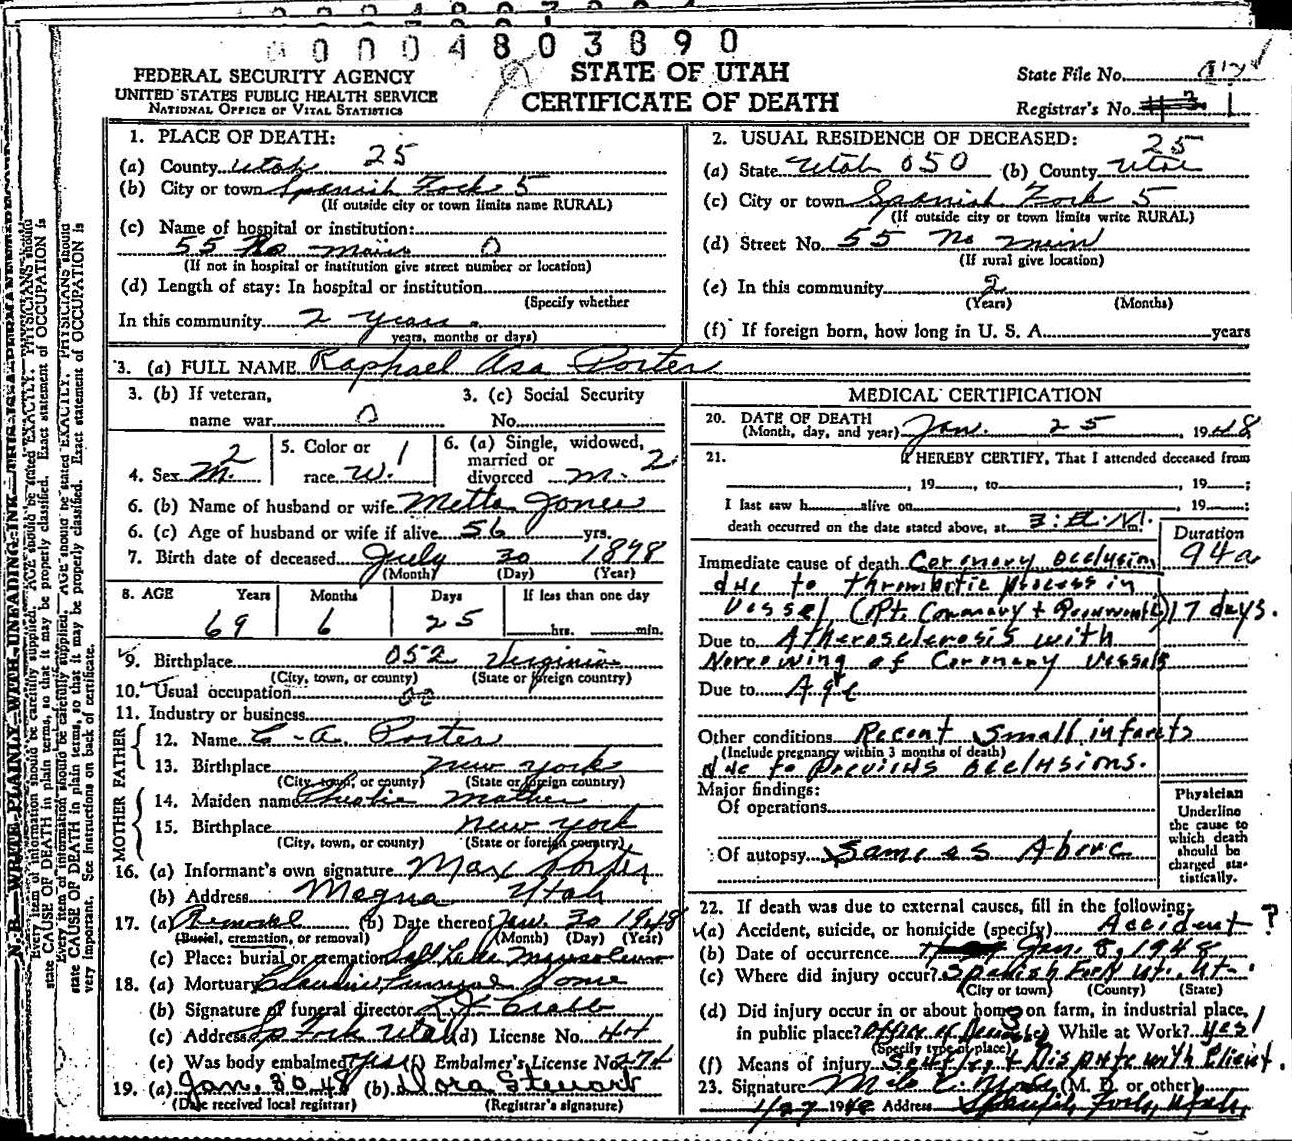 00004803890
FEDERAL SECURITY AGENCY
UNITED STATES PUBLIC HEALTH SERVICE
NATIONAL OFFICE OF VITAL STATISTICS
STATE OF UTAH
CERTIFICATE OF DEATH
State File No.
Registrar's No. 1
1. PLACE OF DEATH:
(a) County Utah 25
(b) City or town Spanish Fork 5
(If outside city or town limits name RURAL)
(c) Name of hospital or institution:
55 No Main 0
(If not in hospital or institution give street number or location)
(d) Length of stay: In hospital or institution
(Specify whether
In this community 2 years.
years, months or days)
2. USUAL RESIDENCE OF DECEASED:
25
(a) State Utah 050 (b) County Utah
(c) City or town Spanish Fork 5
(If outside city or town limits write RURAL)
(d) Street No. 55 No main
(If rural give location)
(e) In this community 2
(Years) (Months)
(f) If foreign born, how long in U. S. A. years
3. (a) FULL NAME Raphael Asa Porter
3. (b) If veteran,
name war. 0
3. (c) Social Security
No.
4. Sex M. 2
5. Color or
race W. 1
6. (a) Single, widowed,
married or
divorced m. 2
6. (b) Name of husband or wife Metta Jones
6. (c) Age of husband or wife if alive 56 yrs.
7. Birth date of deceased July 30 1878
(Month) (Day) (Year)
8. AGE Years Months Days If less than one day
69 6 25 hrs. min.
9. Birthplace 052 Virginia
(City, town, or county) (State or foreign country)
10. Usual occupation
11. Industry or business
FATHER
12. Name C. A. Porter
13. Birthplace New York
(City, town, or county) (State or foreign country)
MOTHER
14. Maiden name Mather
15. Birthplace New York
(City, town, or county) (State or foreign country)
16. (a) Informant's own signature Max Porter
(b) Address Magna Utah
17. (a) Removal (b) Date thereof Jan. 30 1948
(Burial, cremation, or removal) (Month) (Day) (Year)
(c) Place: burial or cremation Salt Lake Mausoleum
18. (a) Mortuary Claudin Funeral Home
(b) Signature of funeral director
(c) Address Sp Fork Utah (d) License No. 44
(e) Was body embalmed? yes (f) Embalmer's License No. 274
19. (a) Jan. 30 48 (b) Dora Stewart
(Date received local registrar) (Registrar's signature)
MEDICAL CERTIFICATION
20. DATE OF DEATH
(Month, day, and year) Jan. 25, 1948
21. I HEREBY CERTIFY, That I attended deceased from
, 19 , to , 19 ;
I last saw h alive on , 19 ;
death occurred on the date stated above, at M.
Duration
94a
Immediate cause of death Coronary occlusion
due to thrombotic process in
vessel (Rt. Coronary + 17 days.
Due to Atherosclerosis with
Narrowing of Coronary Vessels
Due to Age
Other conditions Recent Small infarcts
(Include pregnancy within 3 months of death)
due to previous occlusions.
Major findings:
Of operations
Of autopsy Same as Above
Physician
Underline
the cause to
which death
should be
charged sta-
tistically.
22. If death was due to external causes, fill in the following:
(a) Accident, suicide, or homicide (specify) Accident ?
(b) Date of occurrence Jan. 8, 1948
(c) Where did injury occur? Spanish Fork Ut. Ut.
(City or town) (County) (State)
(d) Did injury occur in or about home, on farm, in industrial place,
in public place? Office of While at Work? yes
(Specify type of place)
(f) Means of injury Scuffle + Dispute with Client.
23. Signature (M. D. or other)
1/27 1948 Address Spanish Fork, Utah
N. B. WRITE PLAINLY WITH UNFADING INK
Every item of information should be carefully supplied. AGE should be stated EXACTLY. PHYSICIANS should
state CAUSE OF DEATH in plain terms, so that it may be properly classified. Exact statement of OCCUPATION is
very important. See instructions on back of certificate.